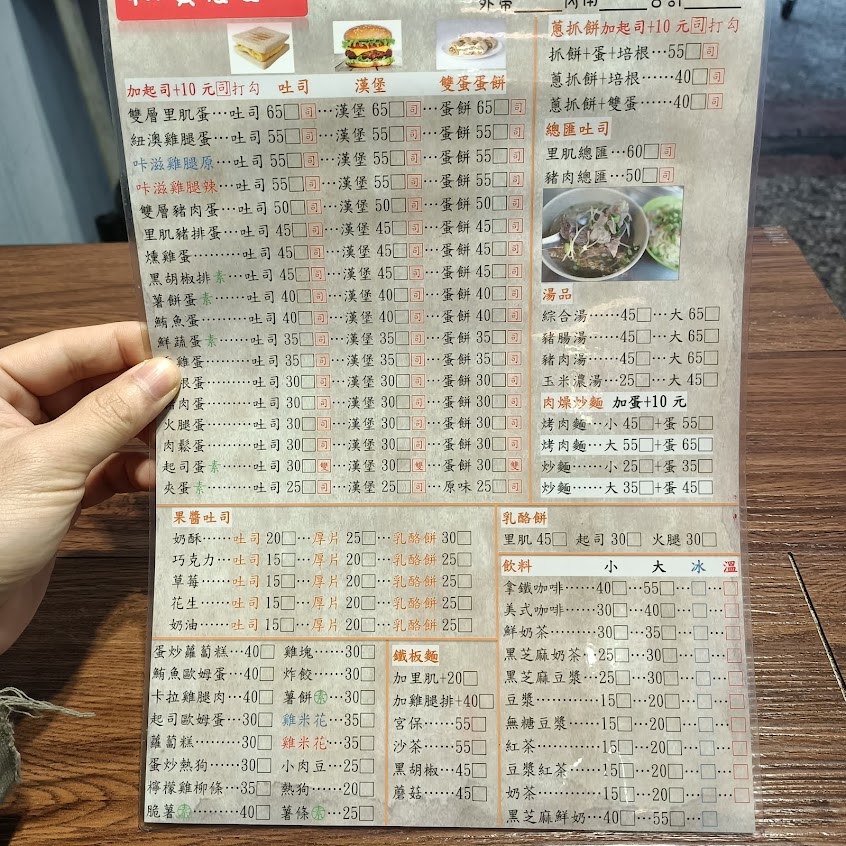 外帶____內用____合計____
加起司+10 元司打勾 吐司 漢堡 雙蛋蛋餅
雙層里肌蛋…吐司 65□司…漢堡 65□司…蛋餅 65□司
紐澳雞腿蛋…吐司 55□司…漢堡 55□司…蛋餅 55□司
咔滋雞腿原…吐司 55□司…漢堡 55□司…蛋餅 55□司
咔滋雞腿辣…吐司 55□司…漢堡 55□司…蛋餅 55□司
雙層豬肉蛋…吐司 50□司…漢堡 50□司…蛋餅 50□司
里肌豬排蛋…吐司 45□司…漢堡 45□司…蛋餅 45□司
燻雞蛋………吐司 45□司…漢堡 45□司…蛋餅 45□司
黑胡椒排素…吐司 45□司…漢堡 45□司…蛋餅 45□司
薯餅蛋素……吐司 40□司…漢堡 40□司…蛋餅 40□司
鮪魚蛋………吐司 40□司…漢堡 40□司…蛋餅 40□司
鮮蔬蛋素……吐司 35□司…漢堡 35□司…蛋餅 35□司
雞蛋………吐司 35□司…漢堡 35□司…蛋餅 35□司
根蛋………吐司 30□司…漢堡 30□司…蛋餅 30□司
肉蛋………吐司 30□司…漢堡 30□司…蛋餅 30□司
火腿蛋………吐司 30□司…漢堡 30□司…蛋餅 30□司
肉鬆蛋………吐司 30□司…漢堡 30□司…蛋餅 30□司
起司蛋素……吐司 30□雙…漢堡 30□雙…蛋餅 30□雙
夾蛋素………吐司 25□司…漢堡 25□司…原味 25□司
蔥抓餅加起司+10 元司打勾
抓餅+蛋+培根…55□司
蔥抓餅+培根……40□司
蔥抓餅+雙蛋……40□司
總匯吐司
里肌總匯…60□司
豬肉總匯…50□司
湯品
綜合湯……45□…大 65□
豬腸湯……45□…大 65□
豬肉湯……45□…大 65□
玉米濃湯…25□…大 45□
肉燥炒麵 加蛋+10 元
烤肉麵…小 45□+蛋 55□
烤肉麵…大 55□+蛋 65□
炒麵……小 25□+蛋 35□
炒麵……大 35□+蛋 45□
果醬吐司
奶酥……吐司 20□…厚片 25□…乳酪餅 30□
巧克力…吐司 15□…厚片 20□…乳酪餅 25□
草莓……吐司 15□…厚片 20□…乳酪餅 25□
花生……吐司 15□…厚片 20□…乳酪餅 25□
奶油……吐司 15□…厚片 20□…乳酪餅 25□
乳酪餅
里肌 45□ 起司 30□ 火腿 30□
飲料 小 大 冰 溫
拿鐵咖啡……40□…55□…□…□
美式咖啡……30□…40□…□…□
鮮奶茶………30□…35□…□…□
黑芝麻奶茶…25□…30□…□…□
黑芝麻豆漿…25□…30□…□…□
豆漿…………15□…20□…□…□
無糖豆漿……15□…20□…□…□
紅茶…………15□…20□…□…□
豆漿紅茶……15□…20□…□…□
奶茶…………15□…20□…□…□
黑芝麻鮮奶…40□…55□…□
蛋炒蘿蔔糕…40□ 雞塊……30□
鮪魚歐姆蛋…40□ 炸餃……30□
卡拉雞腿肉…40□ 薯餅素…30□
起司歐姆蛋…30□ 雞米花…35□
蘿蔔糕………30□ 雞米花…35□
蛋炒熱狗……30□ 小肉豆…25□
檸檬雞柳條…35□ 熱狗……20□
脆薯素………40□ 薯條素…25□
鐵板麵
加里肌+20□
加雞腿排+40□
宮保……55□
沙茶……55□
黑胡椒…45□
蘑菇……45□